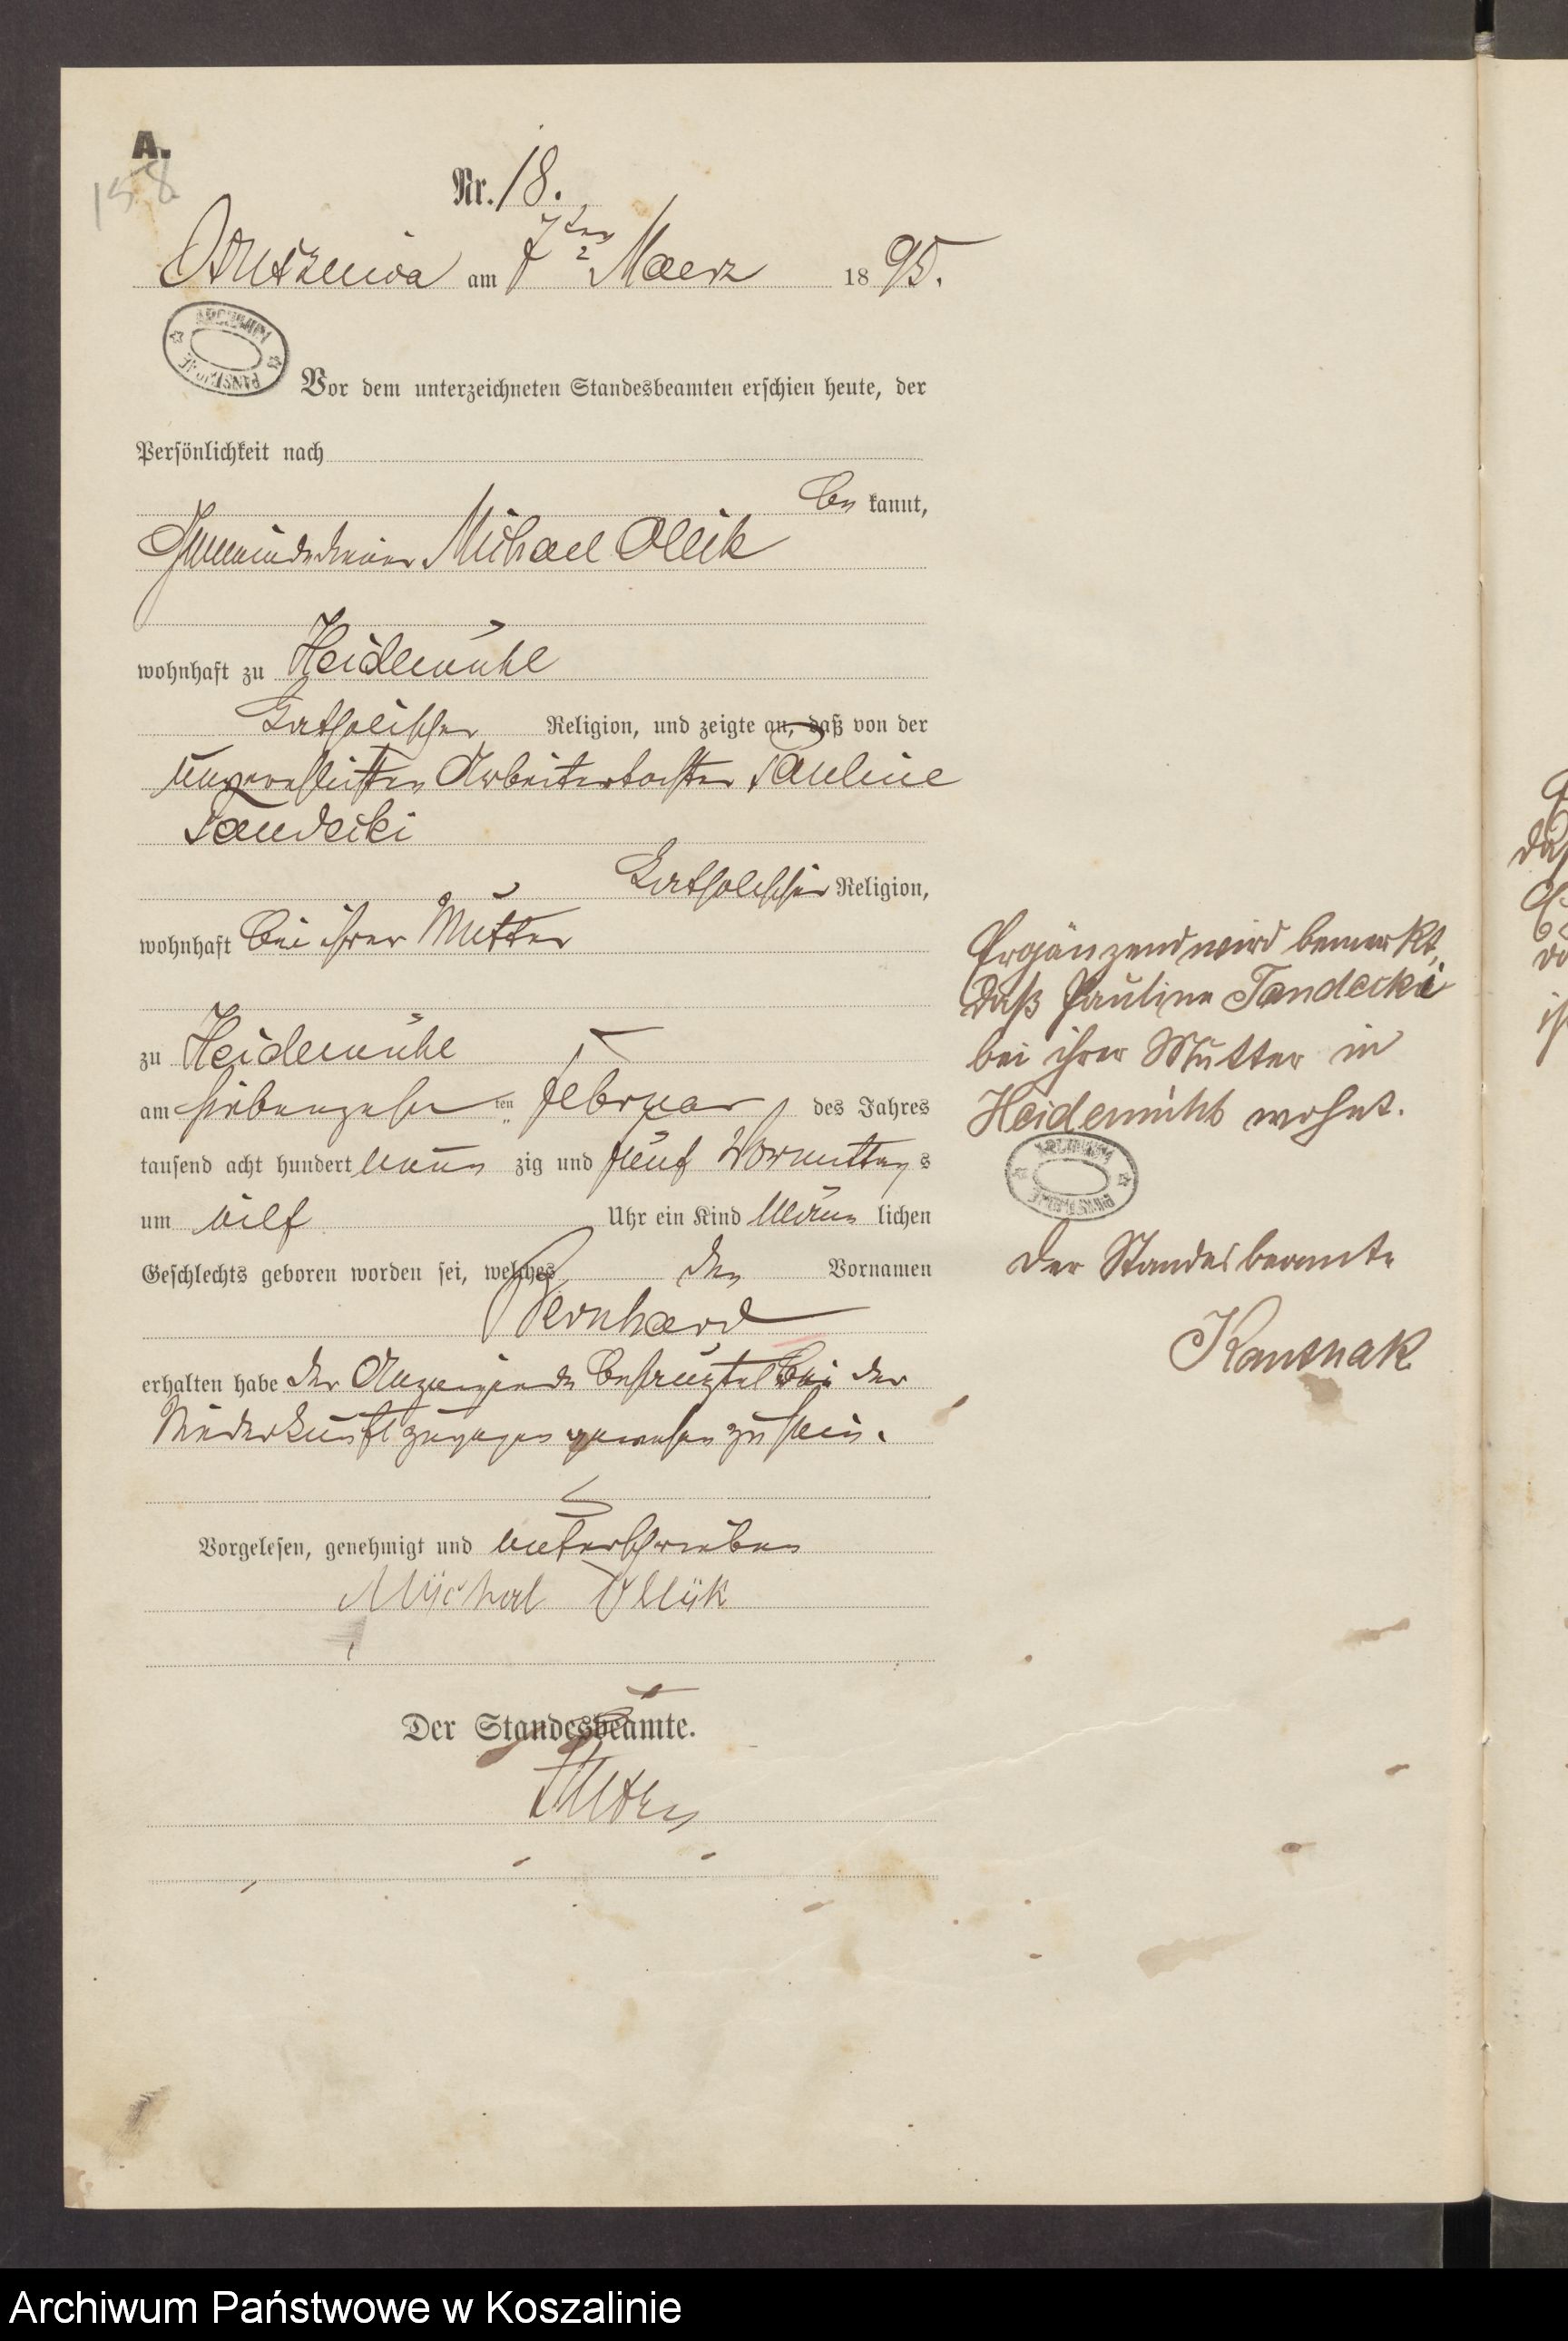 A.
158
Nr. 18.
am 7ten Maerz 1895.
ARCHIWUM PAŃSTWOWE
Vor dem unterzeichneten Standesbeamten erschien heute, der
Persönlichkeit nach
be kannt,
Gemeindediener Michael Ollik
wohnhaft zu Heidemühl
katholischer Religion, und zeigte an, daß von der
unverehelichten Arbeitertochter Pauline
Tandecki
katholischer Religion,
wohnhaft bei ihrer Mutter
zu Heidemühl
am siebenzehn ten Februar des Jahres
tausend acht hundert neun zig und fünf Vormittag s
um eilf Uhr ein Kind männ lichen
Geschlechts geboren worden sei, welches den Vornamen
Bernhard
erhalten habe der Anzeigende bezeugte bei der
Niederkunft zugegen gewesen zu sein.
Vorgelesen, genehmigt und unterschrieben
Ollik
Der Standesbeamte.
Ergänzend wird bemerkt,
daß Pauline Tandecki
bei ihrer Mutter in
Heidemühl wohnt.
ARCHIWUM PAŃSTWOWE
Der Standesbeamte
Archiwum Państwowe w Koszalinie